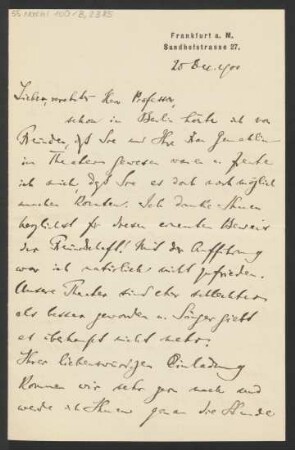 Frankfurt a. M.
Sandhofstrasse 27.
25 Dez. 900
Lieber, verehrter Herr Professor,
schon in Berlin hörte ich von
Freunden, dass Sie und Ihre Frau Gemahlin
im Theater gewesen waren u. freute
ich mich, dass Sie es doch noch möglich
machen konnten. Ich danke Ihnen
herzlichst für diesen erneuten Beweis
der Freundschaft! Mit der Aufführung
war ich natürlich nicht zufrieden.
Unsere Theater sind eher schlechter
als besser geworden u. Sänger giebt
es überhaupt nicht mehr.
Ihrer liebenswürdigen Einladung
kommen wir sehr gern nach und
werde ich Ihnen genau die Stunde